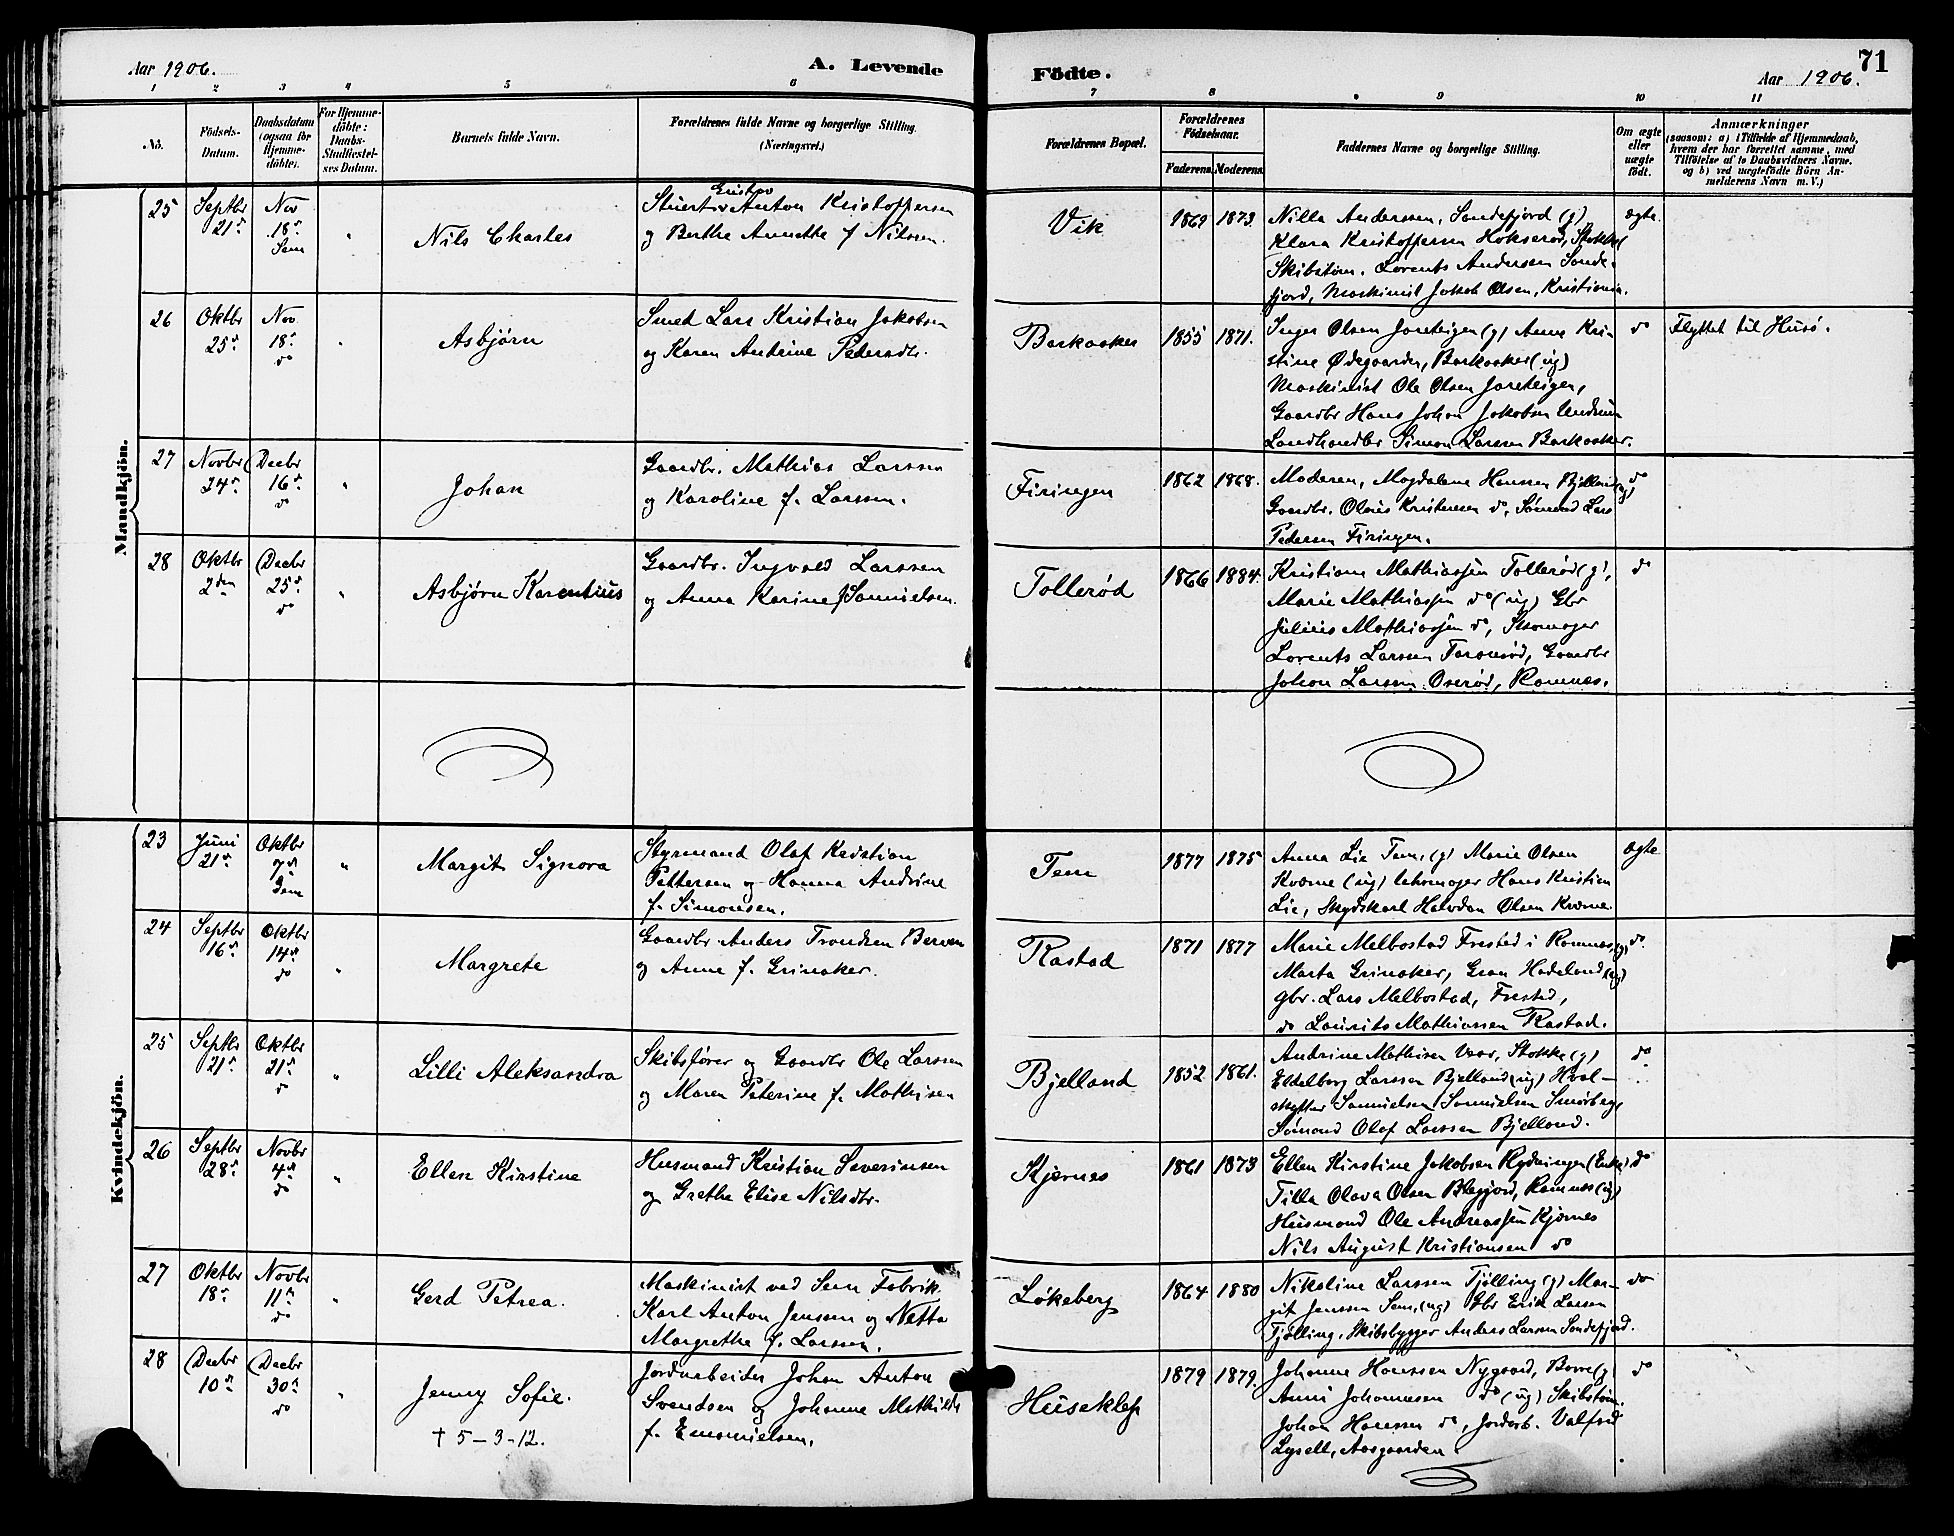 Aar 1906.
A. Levende
Födte.
Aar 1906.
71
1 2 3 4 5 6 7 8 9 10 11
No.
Födsels-
Datum.
Daabsdatum
(ogsaa for
Hjemme-
döbte).
For Hjemme-
döbte:
Daabs-
Stadfæstel-
ses Datum.
Barnets fulde Navn.
Forældrenes fulde Navne og borgerlige Stilling.
(Næringsvei.)
Forældrenes Bopæl.
Forældrenes
Födselsaar.
Faderens. Moderens.
Faddernes Navne og borgerlige Stilling.
Om ægte
eller
uægte
födt.
Anmærkninger
(saasom: a) i Tilfælde af Hjemmedaab,
hvem der har forrettet samme, med
Tilföielse af to Daabsvidners Navne.
og b) ved uægtefödte Börn An-
melderens Navn m. V.)
Mandkjön.
25
Septbr
21d
Nov
18d
Sem
"
Nils Charles
Anton Kristoffersen
og Berthe Annette f Nilssen.
Vik
1869 1873.
Nilla Anderssen, Sandefjord (g)
Klara Kristoffersen Hokserød, Stokke,
Skibstøm. Lorents Andersen Sande-
fjord, Maskinist Jakob Olsen, Kristiania.
ægte.
26
Oktbr
25d
Nov
18d
do
"
Asbjørn
Smed Lars Kristian Jakobsen
og Karen Andrine Pedersdtr.
Barkaaker
1855 1871.
Inger Olsen Jareteigen (g) Anne Kri-
stine Ødegaarden, Barkaaker (ug)
Maskinist Ole Olsen Jareteigen,
Gaardbr Hans Johan Jakobsen Undrum
Landhandler Simon Larssen Barkaaker.
do
Flyttet til Husø.
27
Novbr
24d
Decbr
16d
do
"
Johan
Gaardbr. Mathias Larssen
og Karoline f. Larssen.
Firingen
1862 1868.
Moderen, Magdalene Hanssen Bjelland (ug)
Gaardbr. Olaus Kristensen do, Sømand Lars
Pedersen Firingen.
do
28
Oktbr
2den
Decbr
25d
do
"
Asbjørn Karentius
Gaardbr. Ingvald Larssen
og Anna Karine f Samuelsen.
Tollerød
1866 1884.
Kristiane Mathiassen Tollerød (g),
Marie Mathiassen do (ug) Gbr
Julius Mathiassen do, Skomager
Lorents Larssen, Gaardbr
Johan Larssen Oserød, Ramnes.
do
Kvindekjön.
23
Juni
21d
Oktbr
7d
Sem
"
Margit Signora
Styrmand Olaf Kristian
Pettersen og Hanna Andrine
f. Simonsen.
Tem
1877 1875
Anna Lie Tem, (g) Marie Olsen
Kværne (ug) Hans Kristian
Lie, Skydskarl Halvdan Olsen Kværne.
ægte
24
Septbr
16d
Oktbr
14d
do
"
Margrete
Gaardbr Anders Trondsen Berven
og Anne f. Grinaker.
Rastad
1871 1877
Marie Melbostad Frested i Ramnes, (g)
Marta Grinaker, Gran Hadeland (ug)
gbr. Lars Melbostad, Frested,
do Laurits Mathiassen Rastad.
do
25
Septbr
21d
Oktbr
21d
do
"
Lilli Aleksandra
Skibsfører og Gaardbr Ole Larssen
og Maren Peterine f. Mathisen
Bjelland
1852 1861.
Andrine Mathisen Vaar, Stokke (g)
Edelborg Larssen Bjelland (ug) Hval-
skytter Samuelsen Smørberg,
Sømand Olaf Larssen Bjelland.
do
26
Septbr
28d
Novbr
4d
do
"
Ellen Kirstine
Husmand Kristian Severinsen
og Grethe Elise Nilsdtr.
Kjærnes
1861 1873
Ellen Kirstine Jakobsen Rydningen (Enke)
Tilla Olava Olsen, Ramnes (ug)
Husmand Ole Andreassen Kjærnes
Nils August Kristiansen do
do
27
Oktbr
18d
Novbr
11d
do
"
Gerd Petrea.
Maskinist ved Sem Fabrik
Karl Anton Jensen og Netta
Margrethe f. Larssen.
Løkeberg
1864 1880
Nikoline Larssen Tjølling (g) Mar-
git Jenssen Sem, (ug) Gbr Erik Larsen
Tjølling, Skibsbygger Anders Larssen Sandefjord.
do
28
Decbr
10d
Decbr
30d
do
"
Jenny Sofie.
† 5-3-12.
Jordarbeider Johan Anton
Svendsen og Johanne Mathilde
f. Emanuelsen.
Huseklep
1879 1879.
Johanne Hanssen Nygaard, Borre (g)
Anni Johannesen do (ug) Skibstøm.
Johan Hanssen do, Jordarb. Valfrid
Lysell, Aasgaarden.
do